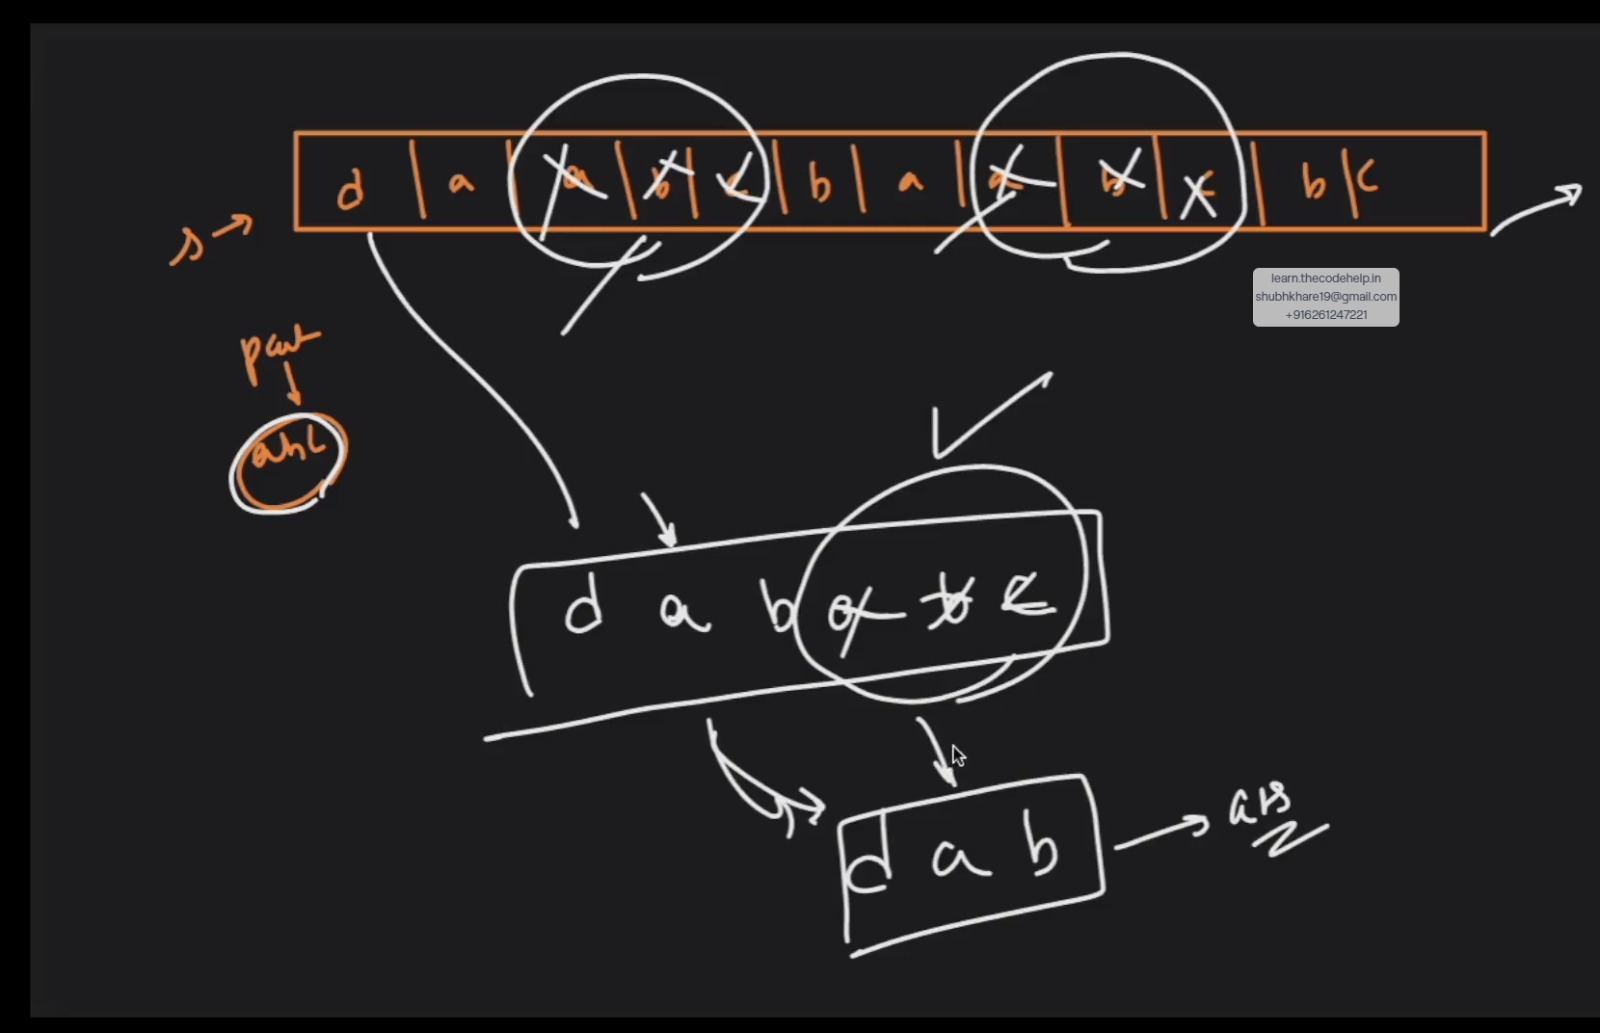 d | a | a | b | c | b | a | a | b | c | b | c
s →
learn.thecodehelp.in
shubhkhare19@gmail.com
+916261247221
part
abc
d a b a b c
d a b → ans